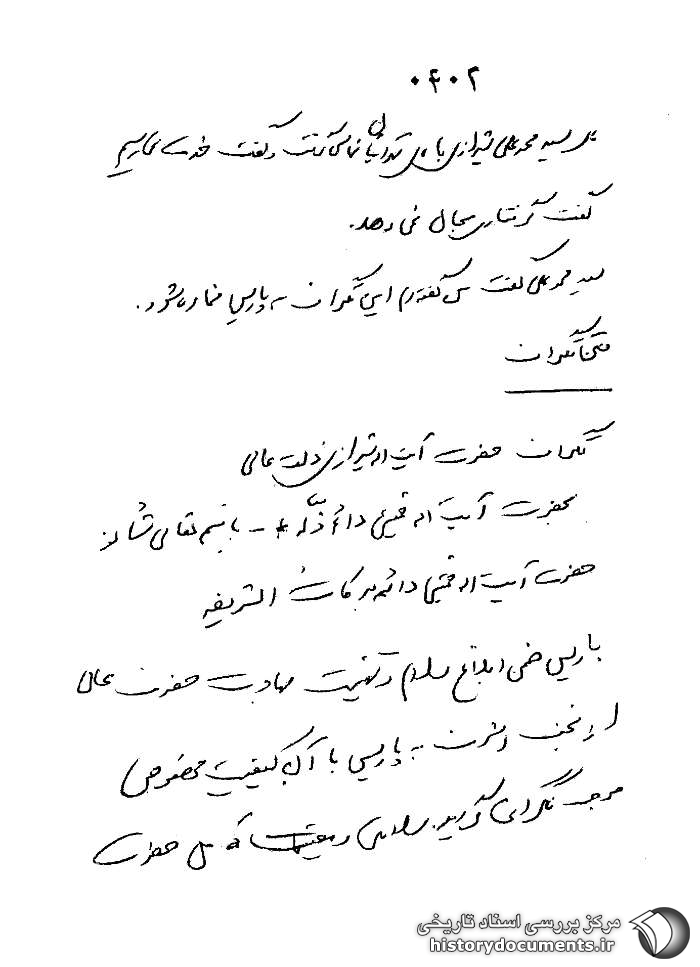 ۰۴۰۲
سید محمد علی شیرازی با تماس گرفت و گفت خدمت نمی‌رسیم
گفت گرفتاری مجال نمی‌دهد.
سید محمد علی گفت می‌گفتم این تلگراف به پاریس مخابره شود.
متن تلگراف
تلگراف حضرت آیت اله شیرازی
بحضرت آیت اله خمینی باسم تعالی شأنه
حضرت آیت اله خمینی دامت برکاته الشریفه
پاریس ضمن ابلاغ سلام و تهنیت مهاجرت حضرت عالی
از نجف اشرف به پاریس با آن کیفیت مخصوص
موجب نگرانی گردید. سلامتی و که حضرت
مرکز بررسی اسناد تاریخی
historydocuments.ir